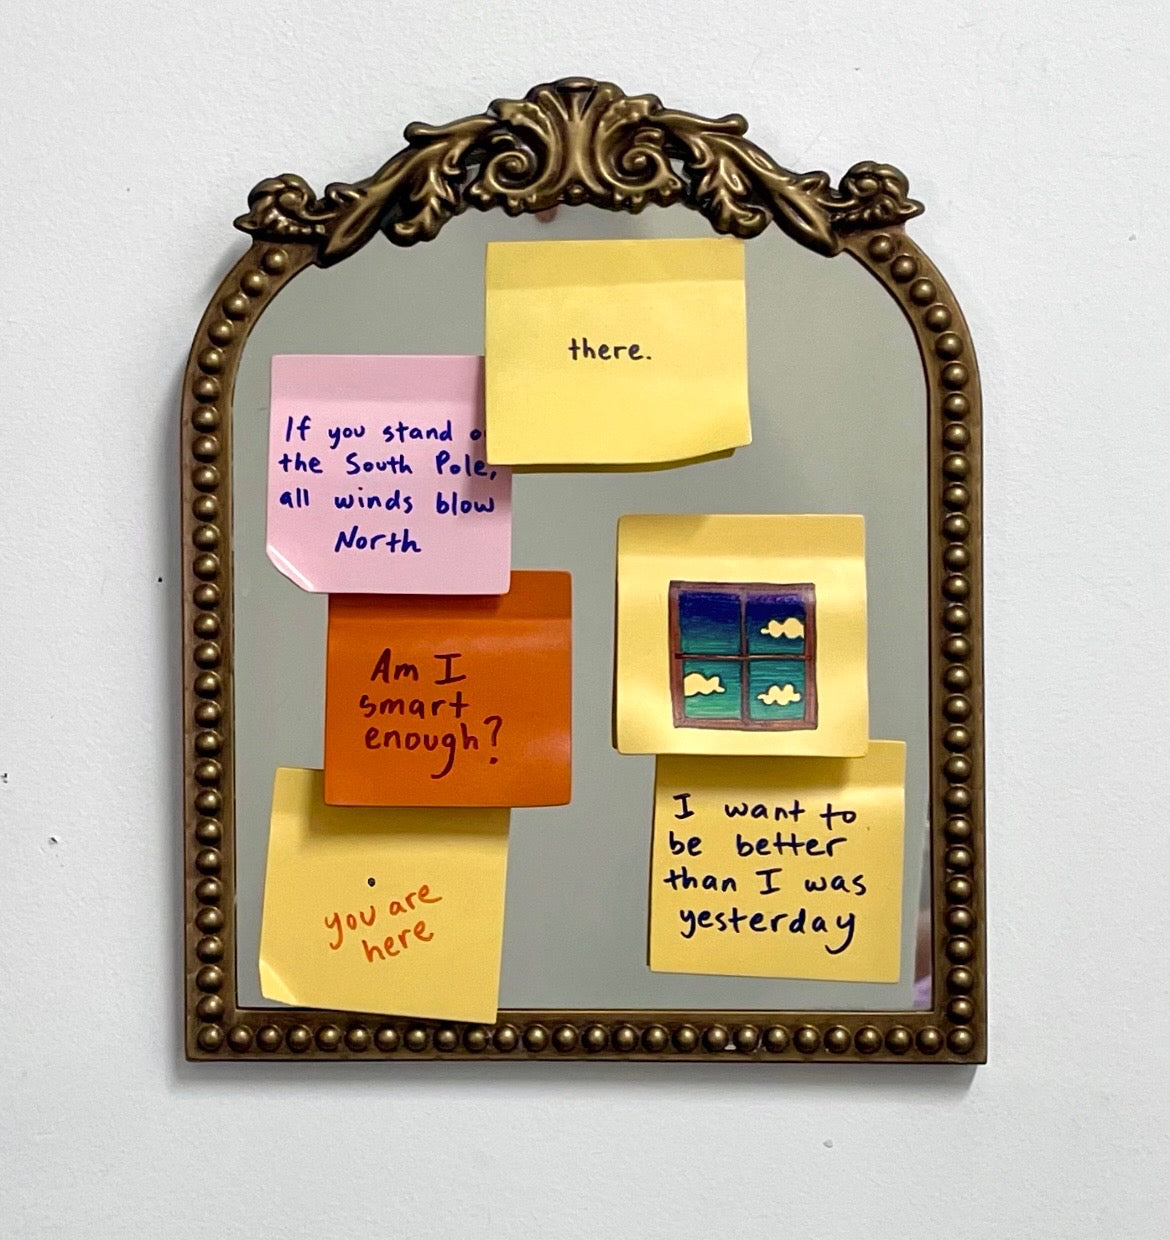 there.
If you stand
the South Pole,
all winds blow
North
Am I
smart
enough?
I want to
be better
than I was
yesterday
you are
here